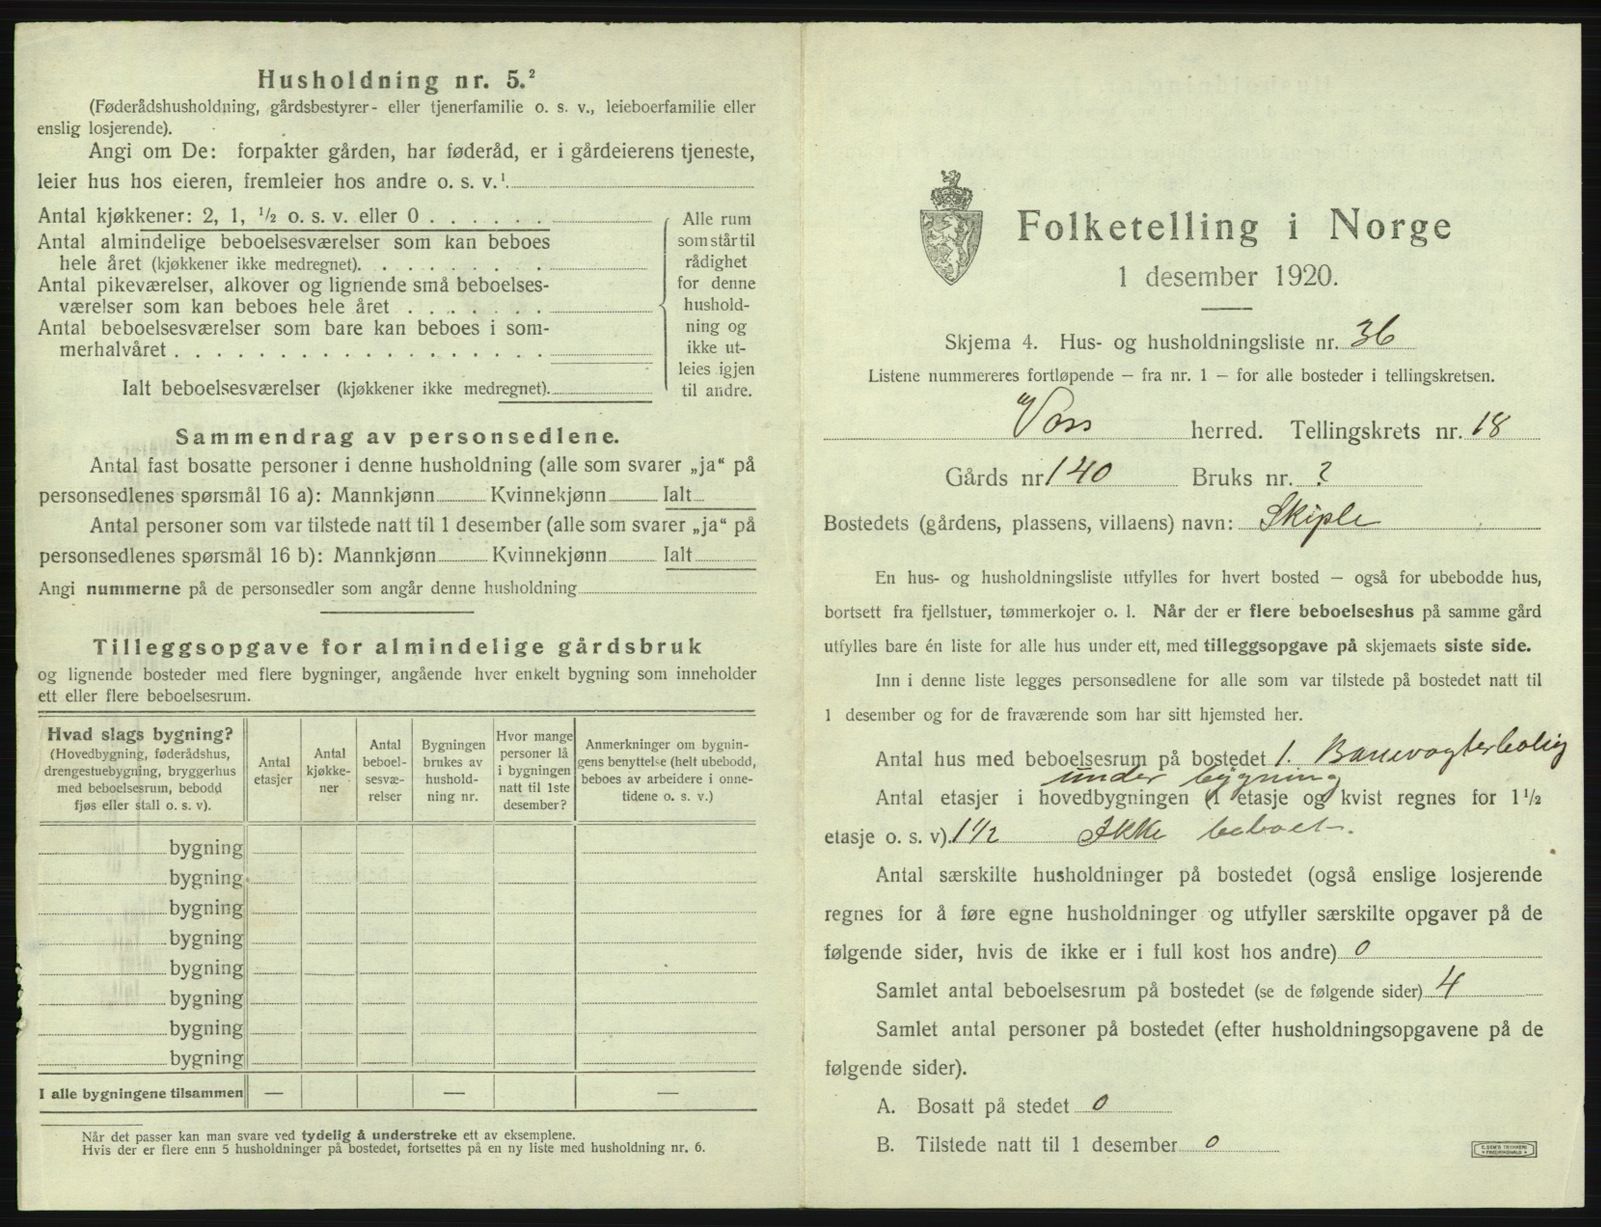 Husholdning nr. 5.²
(Føderådshusholdning, gårdsbestyrer- eller tjenerfamilie o. s. v., leieboerfamilie eller
enslig losjerende).
Angi om De: forpakter gården, har føderåd, er i gårdeierens tjeneste,
leier hus hos eieren, fremleier hos andre o. s. v.¹
Antal kjøkkener: 2, 1, ½ o. s. v. eller 0
Antal almindelige beboelsesværelser som kan beboes
hele året (kjøkkener ikke medregnet).
Antal pikeværelser, alkover og lignende små beboelses-
værelser som kan beboes hele året
Antal beboelsesværelser som bare kan beboes i som-
merhalvåret
Ialt beboelsesværelser (kjøkkener ikke medregnet).
Alle rum
som står til
rådighet
for denne
hushold-
ning og
ikke ut-
leies igjen
til andre.
Sammendrag av personsedlene.
Antal fast bosatte personer i denne husholdning (alle som svarer „ja“ på
personsedlenes spørsmål 16 a): Mannkjønn Kvinnekjønn Ialt
Antal personer som var tilstede natt til 1 desember (alle som svarer „ja“ på
personsedlenes spørsmål 16 b): Mannkjønn Kvinnekjønn Ialt
Angi nummerne på de personsedler som angår denne husholdning
Tilleggsopgave for almindelige gårdsbruk
og lignende bosteder med flere bygninger, angående hver enkelt bygning som inneholder
ett eller flere beboelsesrum.
Hvad slags bygning?
(Hovedbygning, føderådshus,
drengestuebygning, bryggerhus
med beboelsesrum, bebodd
fjøs eller stall o. s. v).
Antal
etasjer
Antal
kjøkke-
ner
Antal
beboel-
sesvæ-
relser
Bygningen
brukes av
hushold-
ning nr.
Hvor mange
personer lå
i bygningen
natt til 1ste
desember?
Anmerkninger om bygnin-
gens benyttelse (helt ubebodd,
beboes av arbeidere i onne-
tidene o. s. v.)
bygning
bygning
bygning
bygning
bygning
bygning
bygning
bygning
I alle bygningene tilsammen — — —
Når det passer kan man svare ved tydelig å understreke ett av eksemplene.
Hvis der er flere enn 5 husholdninger på bostedet, fortsettes på en ny liste med husholdning nr. 6.
Folketelling i Norge
1 desember 1920.
Skjema 4. Hus- og husholdningsliste nr. 36
Listene nummereres fortløpende – fra nr. 1 – for alle bosteder i tellingskretsen.
Voss herred. Tellingskrets nr. 18
Gårds nr. 140 Bruks nr. ?
Bostedets (gårdens, plassens, villaens) navn: Skiple
En hus- og husholdningsliste utfylles for hvert bosted – også for ubebodde hus,
bortsett fra fjellstuer, tømmerkojer o. l. Når der er flere beboelseshus på samme gård
utfylles bare én liste for alle hus under ett, med tilleggsopgave på skjemaets siste side.
Inn i denne liste legges personsedlene for alle som var tilstede på bostedet natt til
1 desember og for de fraværende som har sitt hjemsted her.
Antal hus med beboelsesrum på bostedet 1. Banevogterbolig
under bygning
Antal etasjer i hovedbygningen (1 etasje og kvist regnes for 1½
etasje o. s. v). 1½ Ikke beboet.
Antal særskilte husholdninger på bostedet (også enslige losjerende
regnes for å føre egne husholdninger og utfyller særskilte opgaver på de
følgende sider, hvis de ikke er i full kost hos andre) 0
Samlet antal beboelsesrum på bostedet (se de følgende sider) 4
Samlet antal personer på bostedet (efter husholdningsopgavene på de
følgende sider).
A. Bosatt på stedet 0
B. Tilstede natt til 1 desember 0